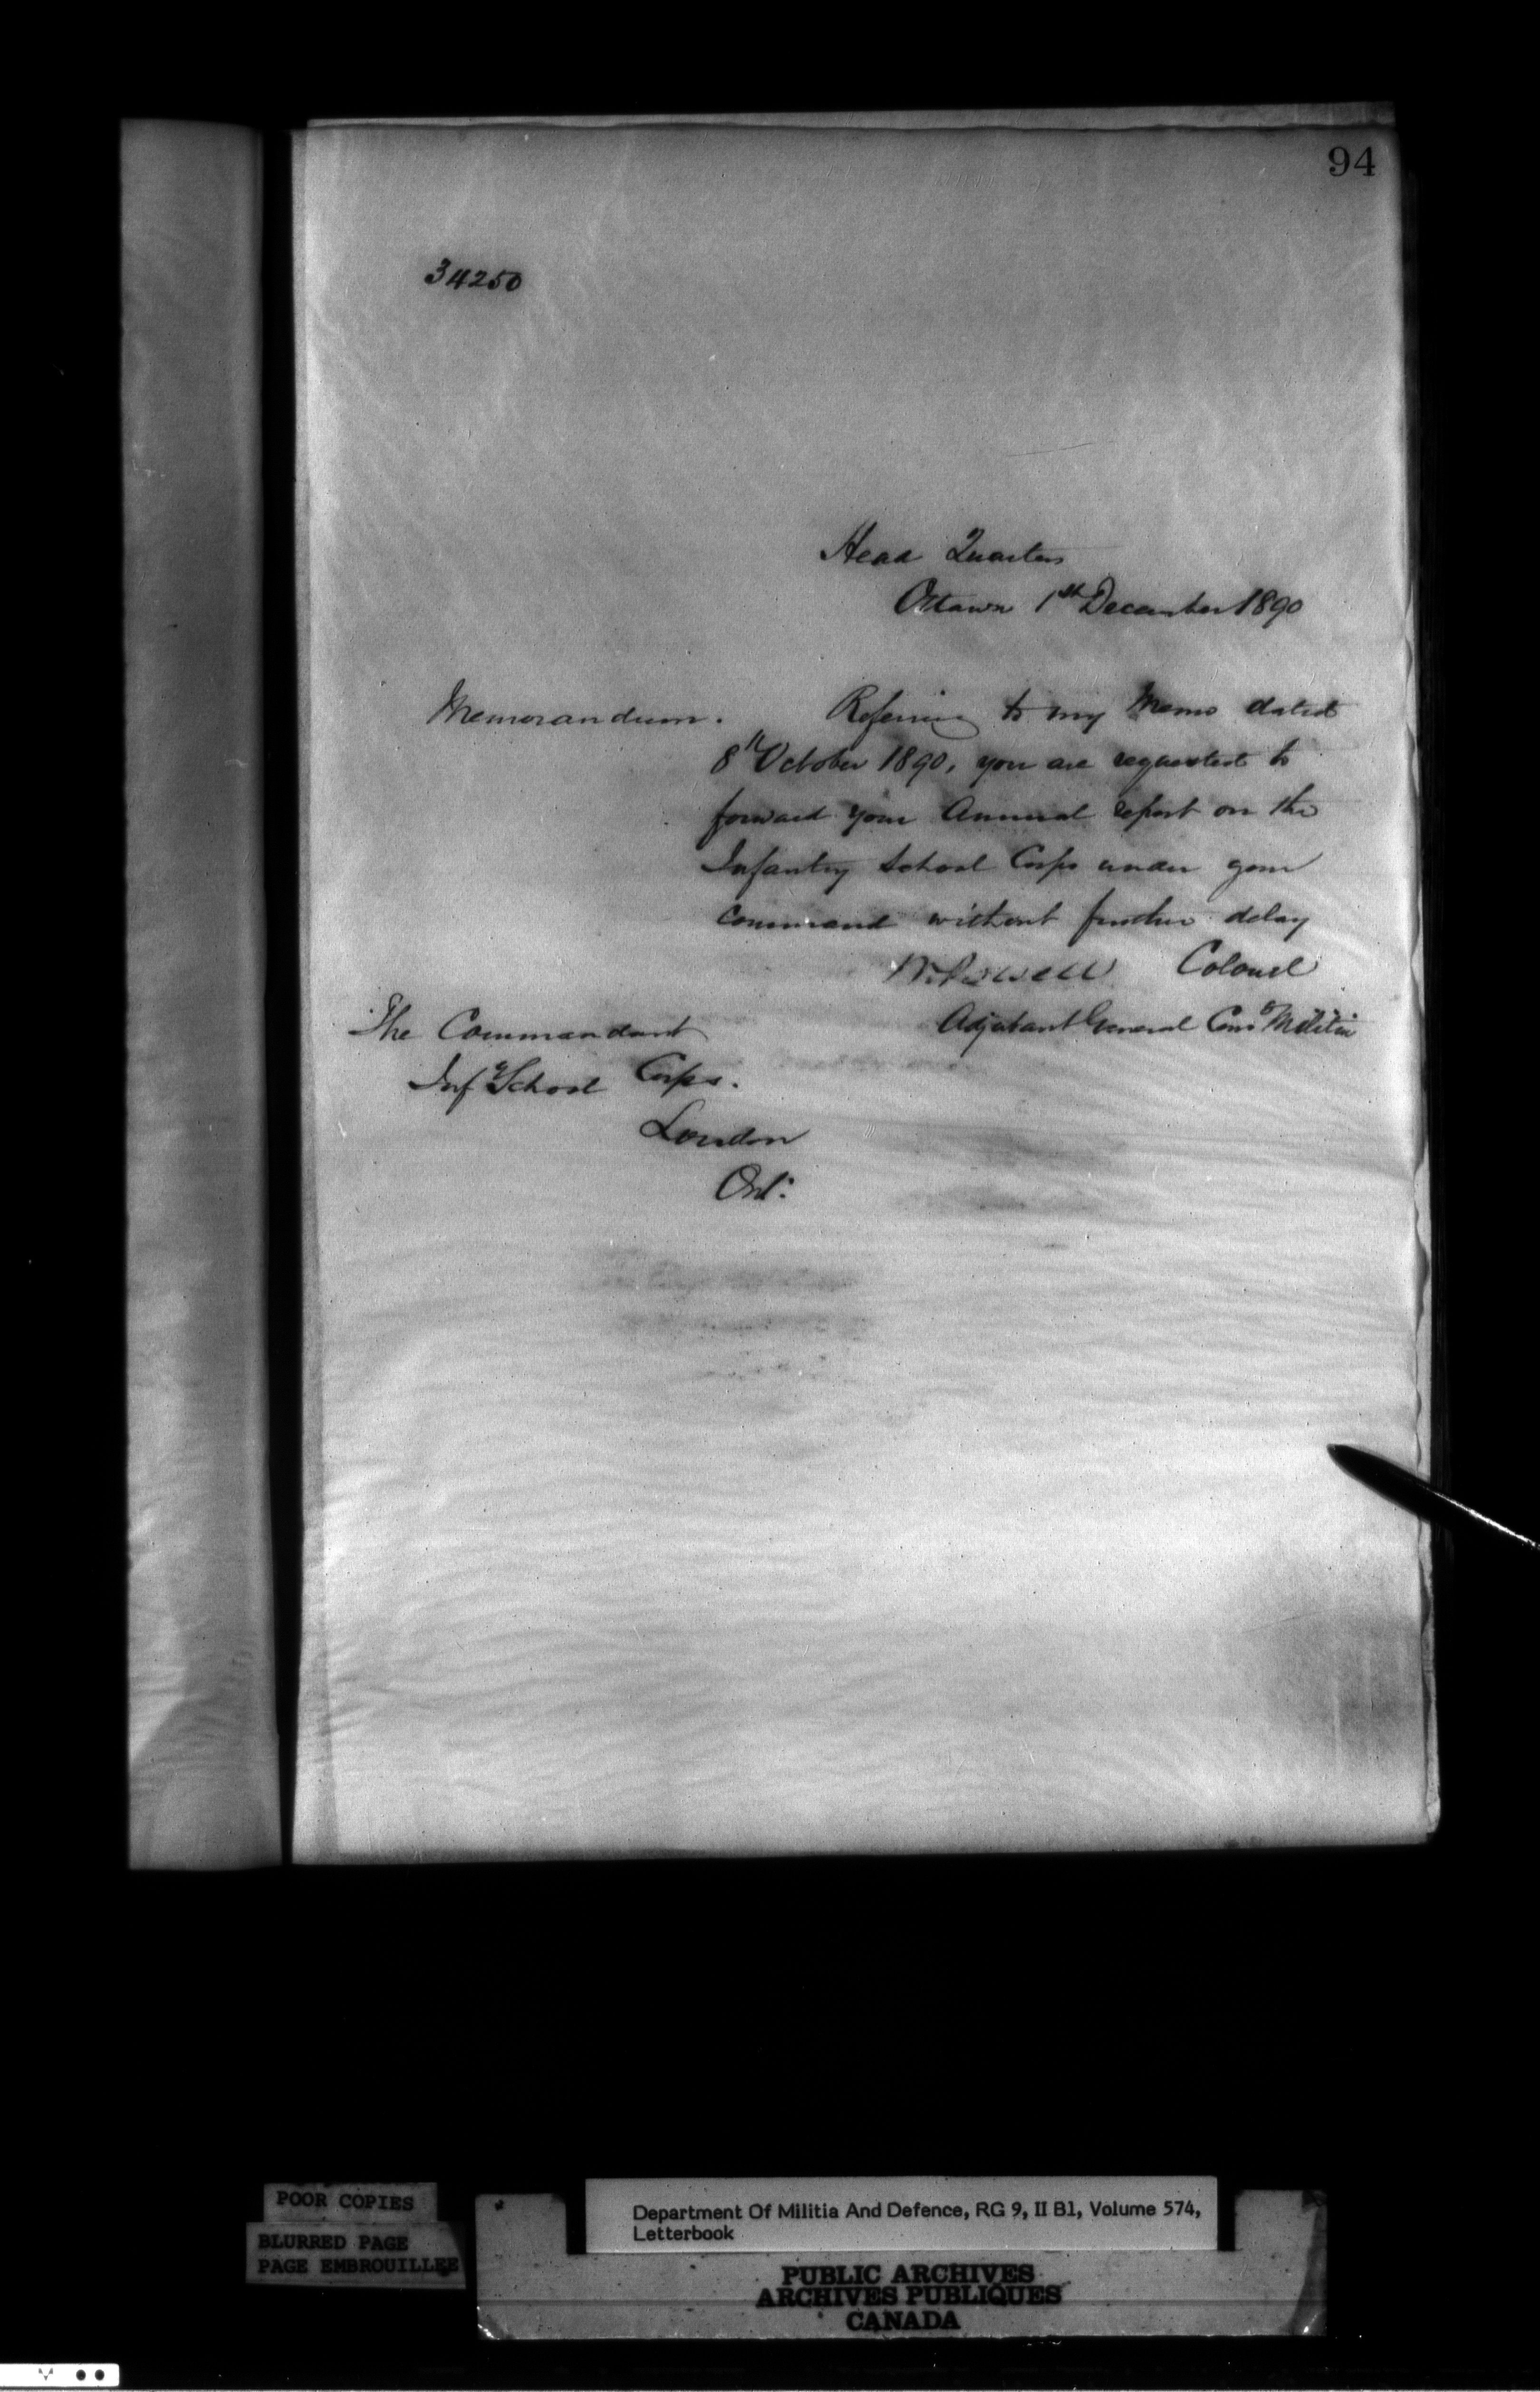 94
34250
Head Quarters
Ottawa 1st December 1890
Memorandum. Referring to my Memo dated
8th October 1890, you are requested to
forward your Annual report on the
Infantry School Corps under your
command without further delay
W. Powell Colonel
Adjutant General Can: Militia
The Commandant
Infy School Corps.
London
Ont:
POOR COPIES
BLURRED PAGE
PAGE EMBROUILLEE
Department Of Militia And Defence, RG 9, II B1, Volume 574,
Letterbook
PUBLIC ARCHIVES
ARCHIVES PUBLIQUES
CANADA